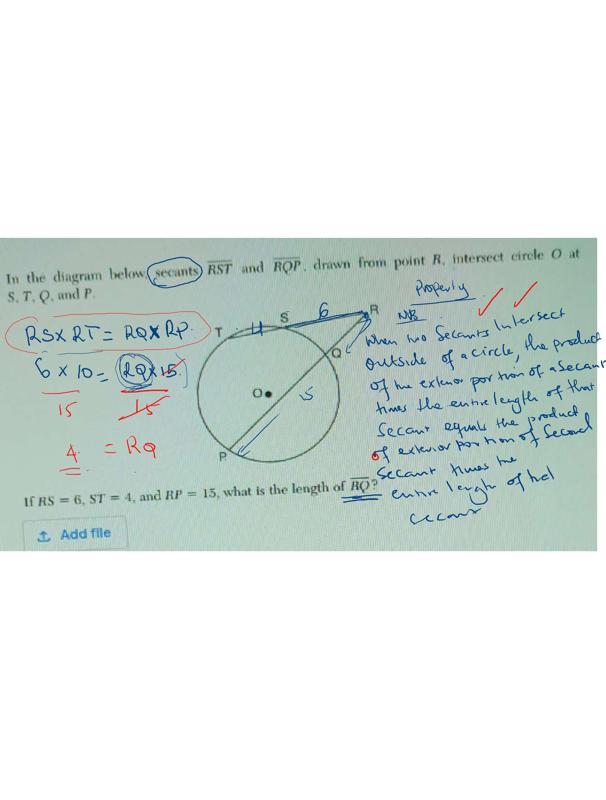 In the diagram below, secants RST and RQP, drawn from point R, intersect circle O at
S, T, Q, and P.
Property
RS x RT = RQ x RP.
6 x 10 = RQ x 15
15 15
4 = RQ
T
S
6
R
4
Q
O
15
P
NB
When two Secants Intersect
outside of a circle, the product
of the exterior portion of a Secant
times the entire length of that
Secant equals the product
of exterior portion of Second
Secant times the
entire length of that
secant
If RS = 6, ST = 4, and RP = 15, what is the length of RQ?
Add file